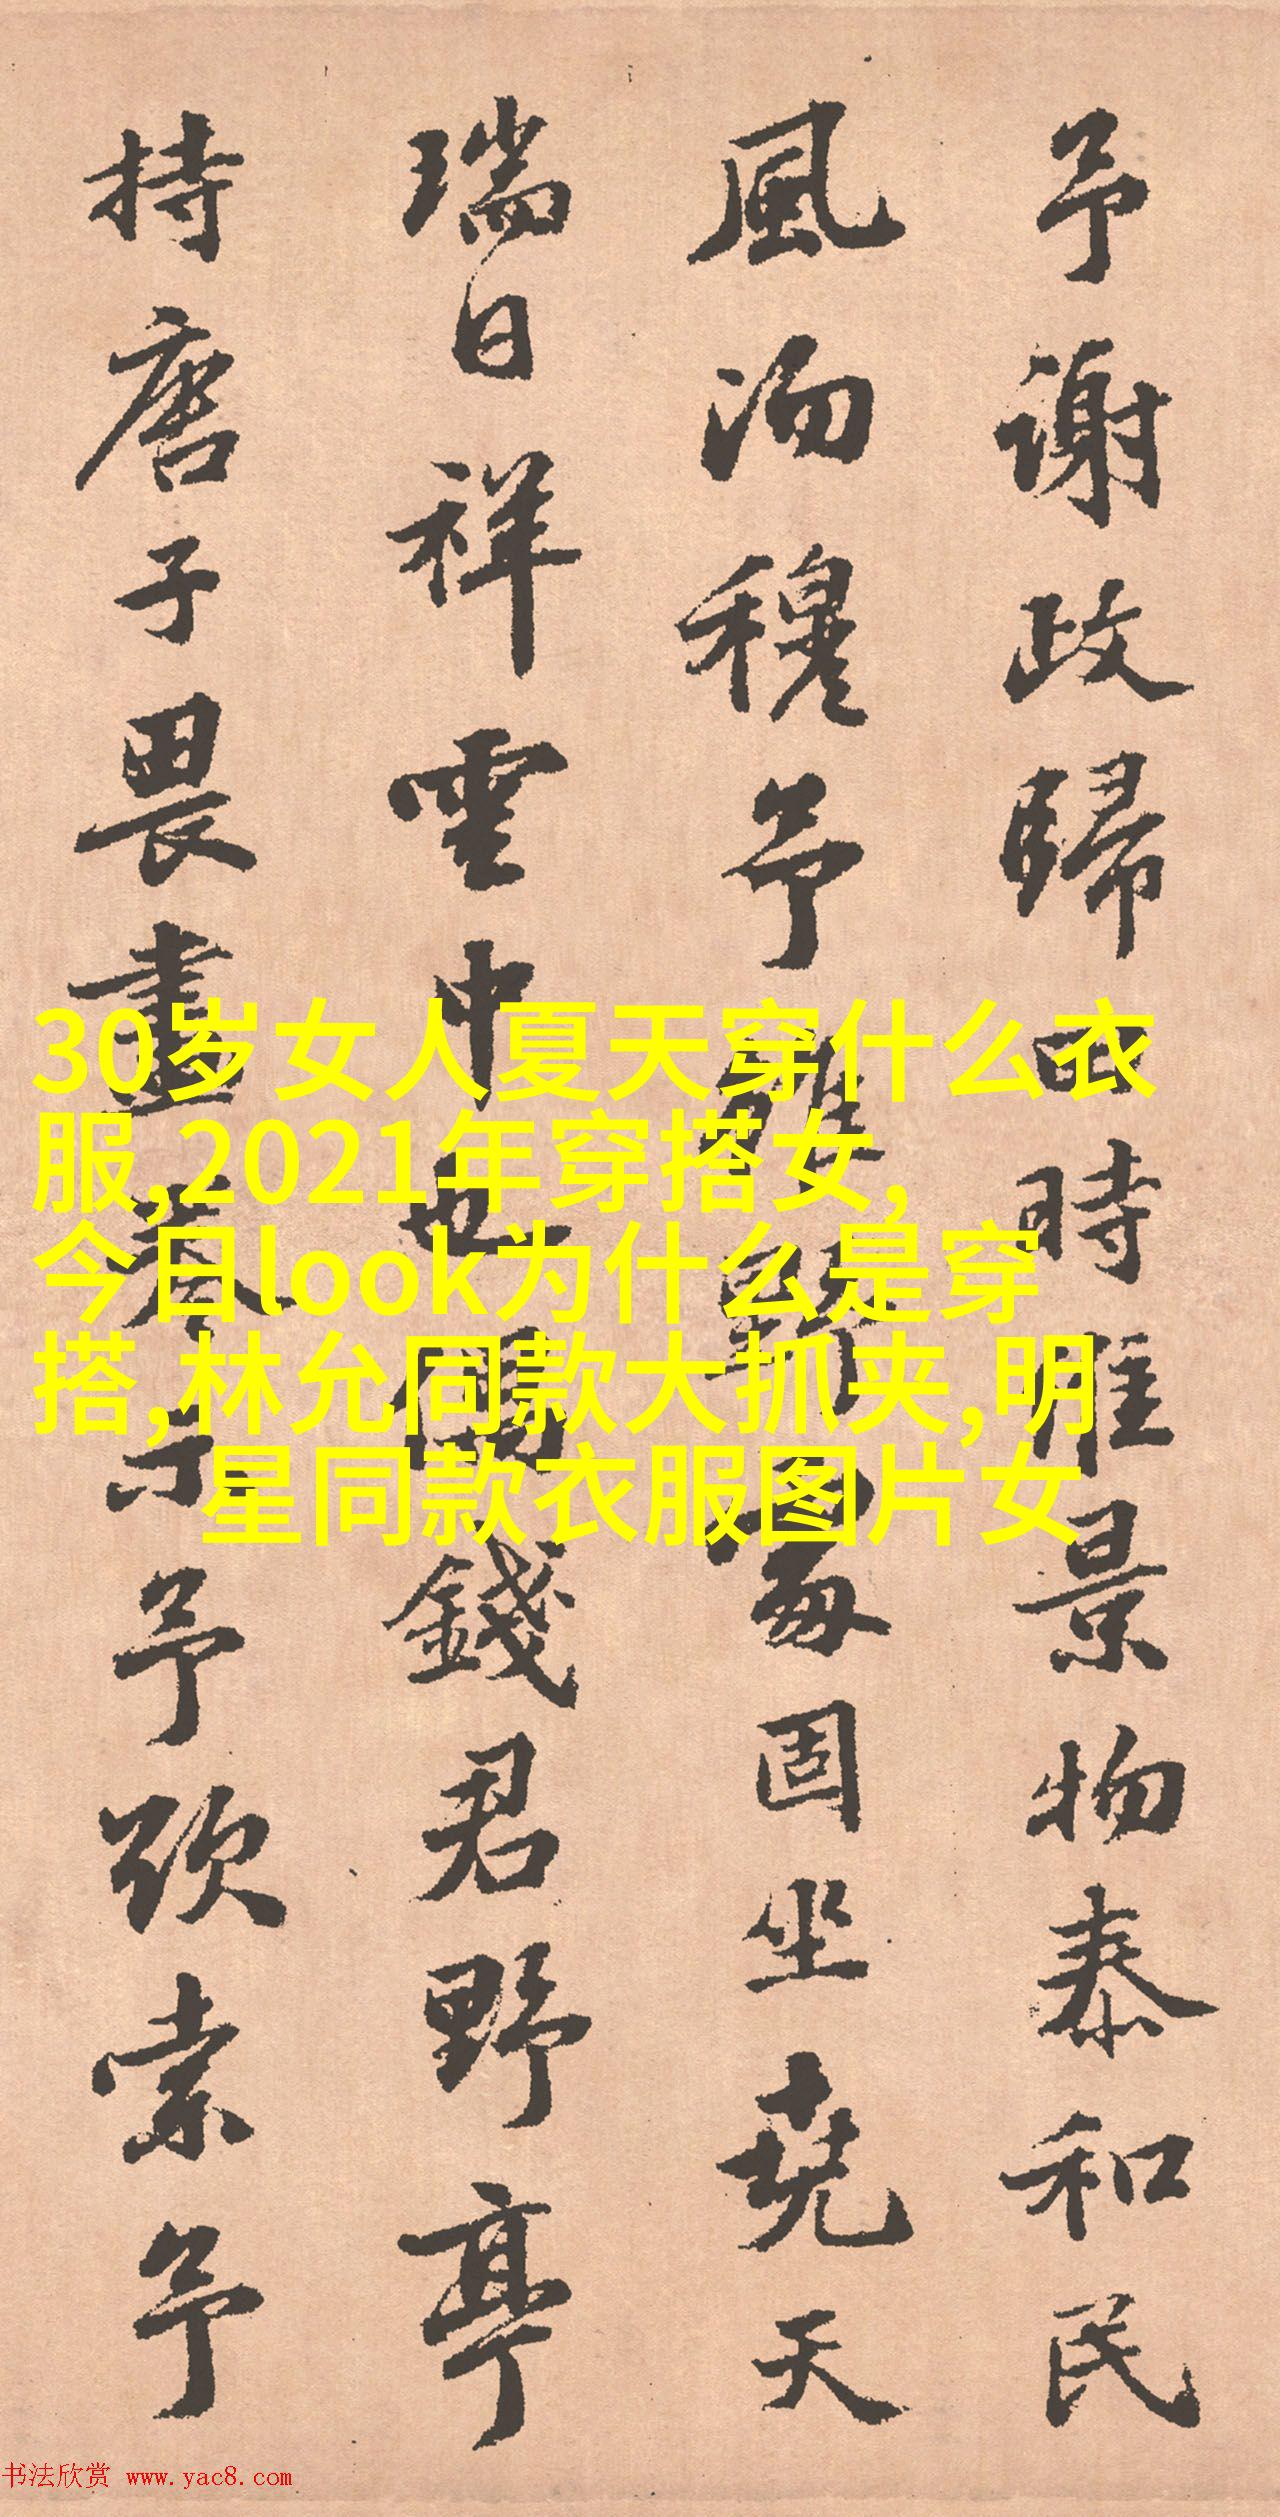 予謝政歸田時惟景物泰和民
風沕穆予雖野固坐堯天
瑞日祥雲中也偶錢君野亭
持唐子畏畫卷示予欲索予
30岁女人夏天穿什么衣
服,2021年穿搭女,
今日look为什么是穿
搭,林允同款大抓夹,明
星同款衣服图片女
书法欣赏 www.yac8.com